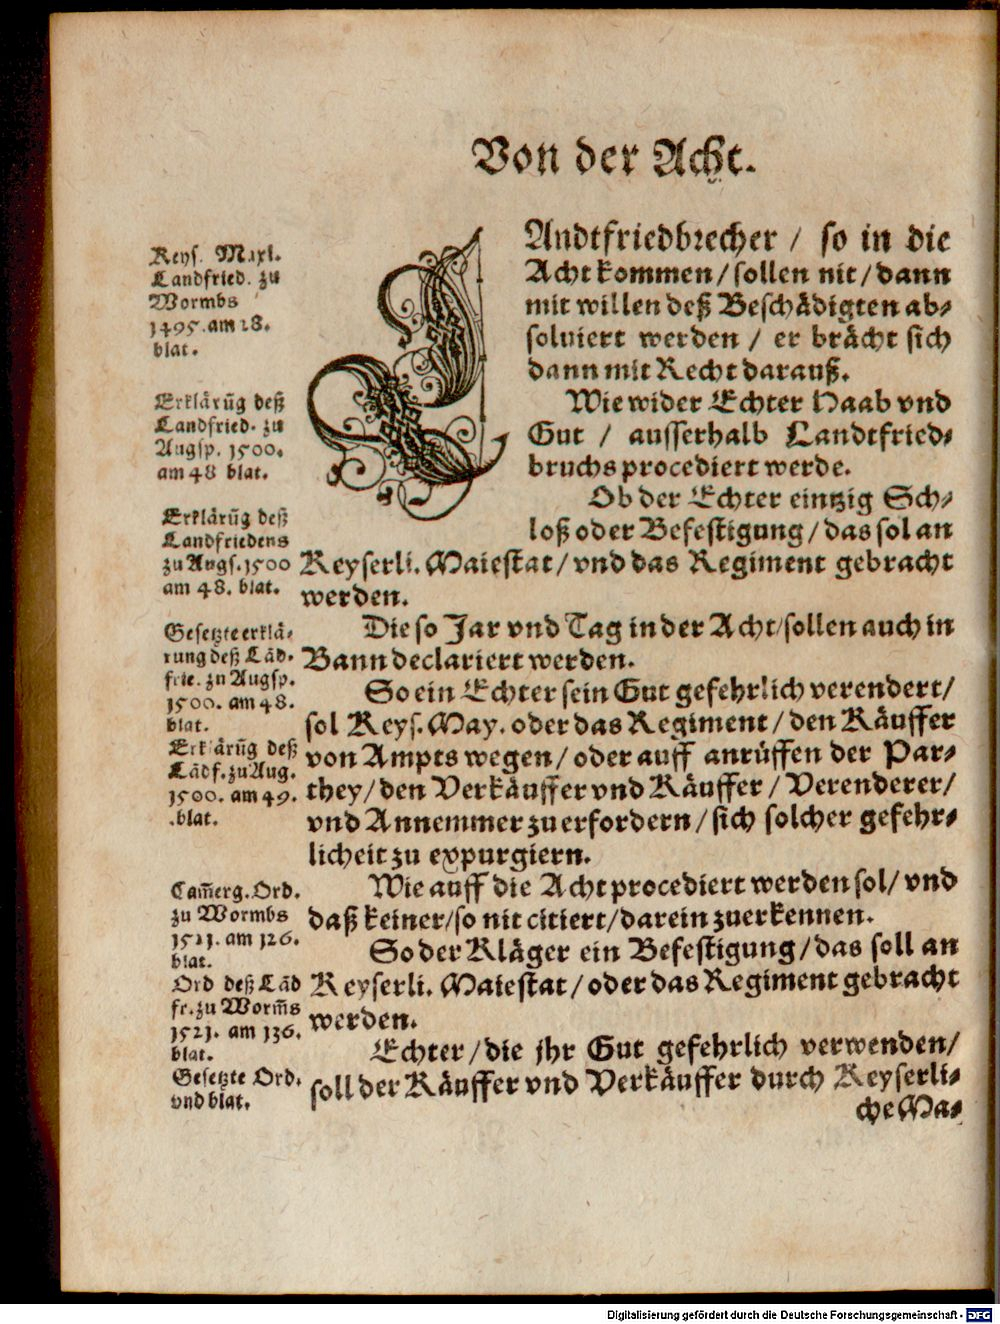 Von der Acht.
Keys. Maxl.
Landfried. zu
Wormbs
1495. am 18.
blat.
Erklärūg deß
Landfried. zu
Augsp. 1500.
am 48 blat.
Erklärūg deß
Landfriedens
zu Augs. 1500
am 48. blat.
Gesetzte erklä-
rung deß Lād-
frie. zu Augsp.
1500. am 48.
blat.
Erklärūg deß
Lādf. zu Aug.
1500. am 49.
blat.
Cam̄erg. Ord.
zu Wormbs
1521. am 126.
blat.
Ord deß Lād
fr. zu Worm̄s
1521. am 136.
blat.
Gesetzte Ord.
vnd blat.
LAndtfriedbrecher / so in die
Acht kommen / sollen nit / dann
mit willen deß Beschädigten ab-
soluiert werden / er brächt sich
dann mit Recht darauß.
Wie wider Echter Haab vnd
Gut / ausserhalb Landtfried-
bruchs procediert werde.
Ob der Echter eintzig Sch-
loß oder Befestigung / das sol an
Keyserli. Maiestat / vnd das Regiment gebracht
werden.
Die so Jar vnd Tag in der Acht / sollen auch in
Bann declariert werden.
So ein Echter sein Gut gefehrlich verendert /
sol Keys. May. oder das Regiment / den Käuffer
von Ampts wegen / oder auff anrüffen der Par-
they / den Verkäuffer vnd Käuffer / Verenderer /
vnd Annemmer zu erfordern / sich solcher gefehr-
licheit zu expurgiern.
Wie auff die Acht procediert werden sol / vnd
daß keiner / so nit citiert / darein zuerkennen.
So der Kläger ein Befestigung / das soll an
Keyserli. Maiestat / oder das Regiment gebracht
werden.
Echter / die jhr Gut gefehrlich verwenden /
soll der Käuffer vnd Verkäuffer durch Keyserli-
che Ma-
Digitalisierung gefördert durch die Deutsche Forschungsgemeinschaft - DFG